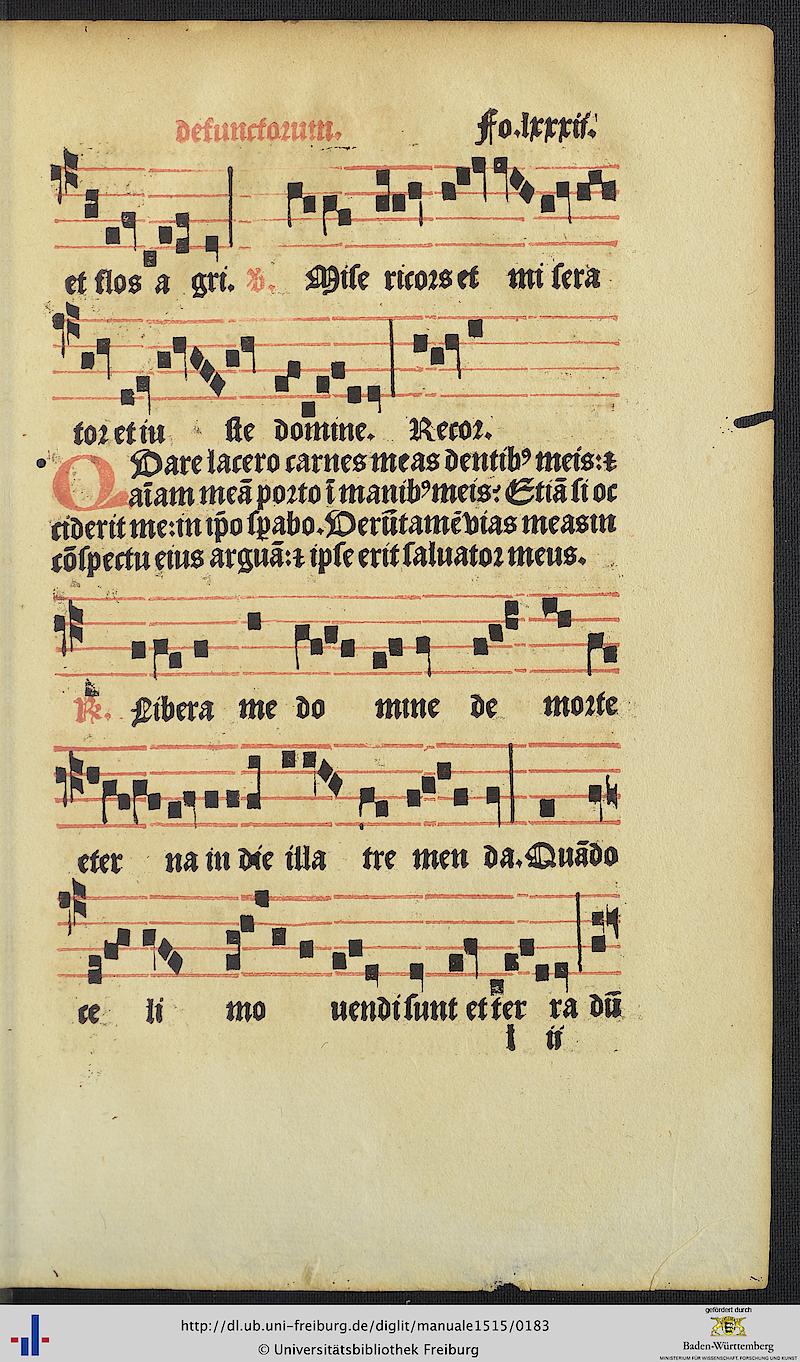 defunctorum. Fo.lxxxii.
et flos a gri. V. Mise ricors et mi sera
tor et iu ste domine. Recor.
QUare lacero carnes meas dentibꝰ meis:⁊
aīam meā porto ī manibꝰ meis: Etiā si oc
ciderit me:in ip̄o sꝑabo. Uerūtamē vias meas in
cōspectu eius arguā:⁊ ipse erit saluator meus.
R. Libera me do mine de morte
eter na in die illa tre men da. Quādo
ce li mo uendi sunt et ter ra dū
l ii
http://dl.ub.uni-freiburg.de/diglit/manuale1515/0183
© Universitätsbibliothek Freiburg
gefördert durch
Baden-Württemberg
MINISTERIUM FÜR WISSENSCHAFT, FORSCHUNG UND KUNST